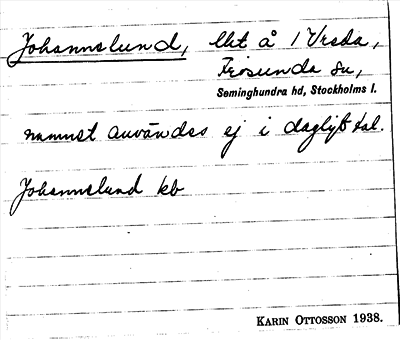 Johanneslund, lht å 1 Vreda,
Frösunda sn,
Seminghundra hd, Stockholms l.
namnet användes ej i dagligt tal.
Johanneslund kb
KARIN OTTOSSON 1938.